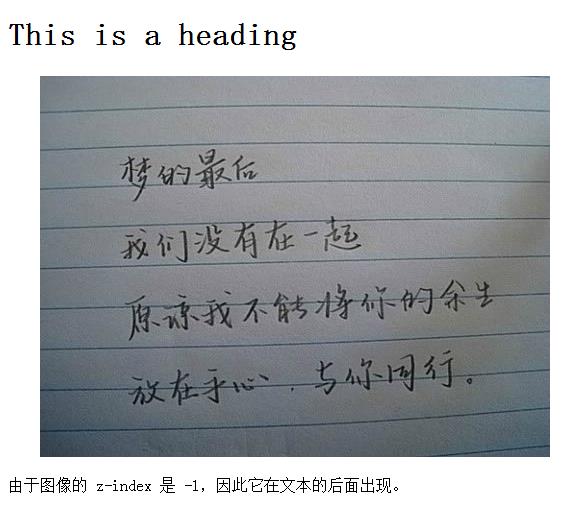 This is a heading
梦的最后
我们没有在一起
原谅我不能将你的余生
放在手心、与你同行。
由于图像的 z-index 是 -1，因此它在文本的后面出现。